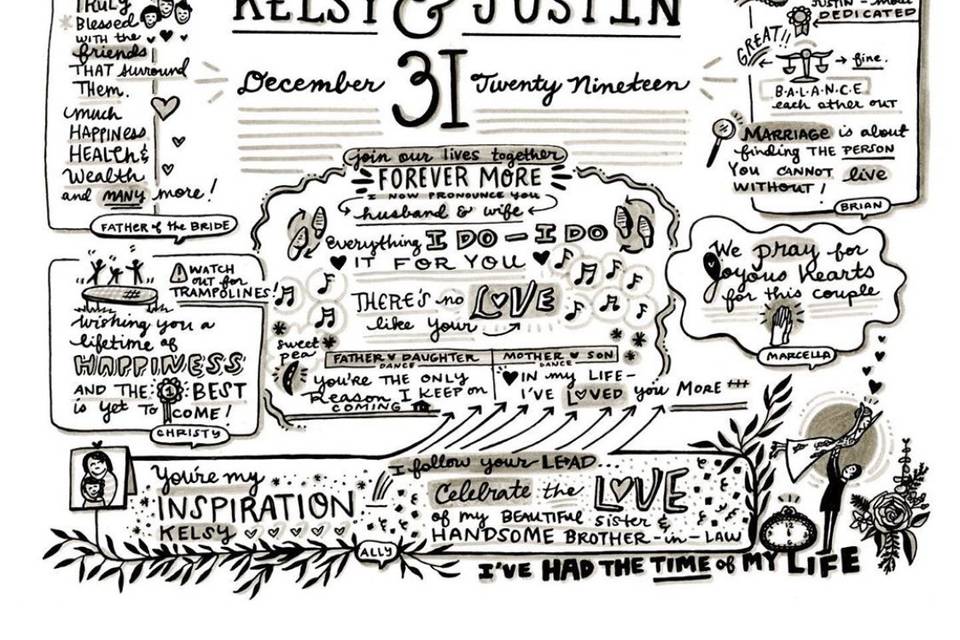 KELSY & JUSTIN
December 31 Twenty Nineteen
TRULY
Blessed
WITH the
friends
THAT surround
Them.
much
HAPPINESS
HEALTH &
Wealth
and MANY more!
FATHER of the BRIDE
JUSTIN - most
DEDICATED
GREAT!!
fine.
B-A-L-A-N-C-E
each other out
MARRIAGE is about
finding THE PERSON
YOU CANNOT live
WITHOUT!
BRIAN
join our lives together
FOREVER MORE
I NOW PRONOUNCE YOU
husband & wife
everything I DO - I DO
IT FOR YOU
THERE'S no LOVE
like your
sweet
pea
FATHER DAUGHTER
DANCE
YOU'RE THE ONLY
Reason I KEEP ON
COMING
MOTHER SON
DANCE
IN my LIFE -
I'VE LOVED you MORE
WATCH
out for
TRAMPOLINES!
Wishing you a
lifetime of
HAPPINESS
AND THE 1 BEST
is yet To COME!
CHRISTY
We pray for
Joyous Hearts
for this couple
MARCELLA
You're my
INSPIRATION
KELSY
ALLY
I follow your LEAD...
Celebrate the LOVE
of my BEAUTIFUL sister &
HANDSOME BROTHER-in-LAW
12
6
I'VE HAD THE TIME of MY LIFE